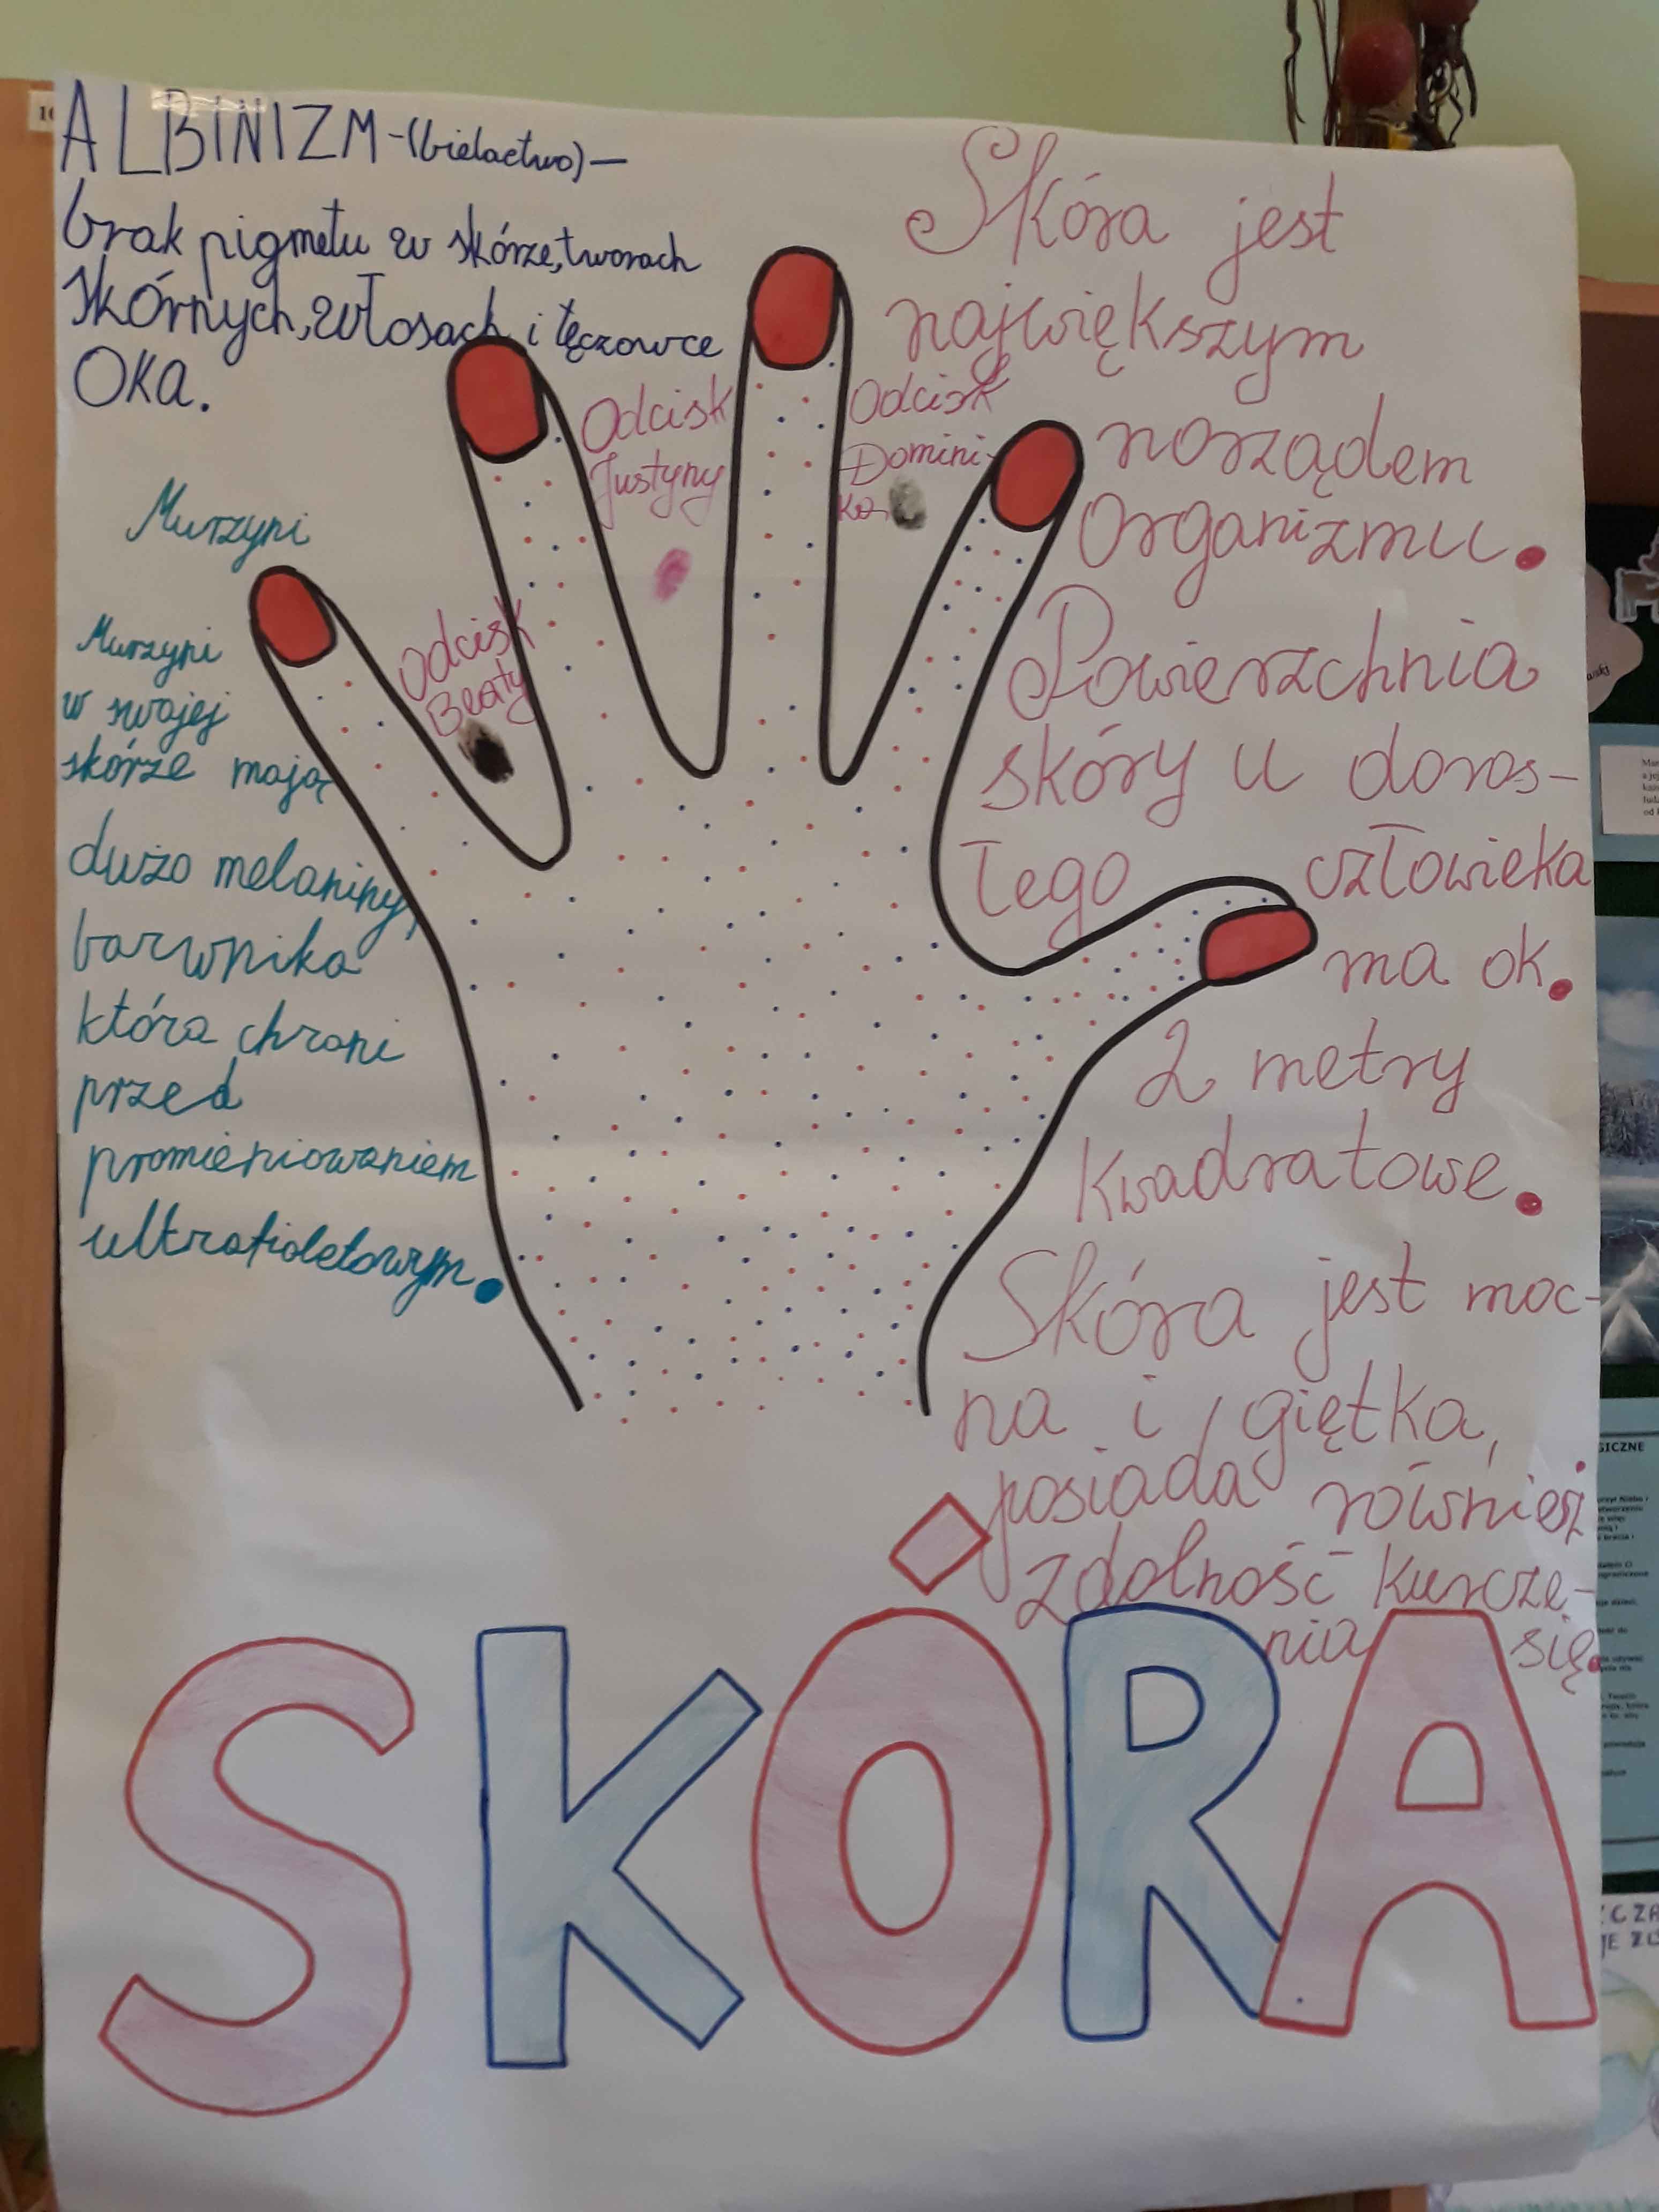 ALBINIZM-(bielactwo)-
brak pigmetu w skórze,tworach
skórnych, włosach i tęczowce
OKA.
Murzyni
Murzyni
w swojej
skórze mają
dużo melaniny,
barwnika
która chroni
przed
promieniowaniem
ultrafioletowym.
Odcisk
Beaty
Odcisk
Justyny
Odcisk
Domini-
ka
Skóra jest
największym
norządem
organizmu.
Powierzchnia
skóry u doros-
łego człowieka
ma ok.
2 metry
kwadratowe.
Skóra jest moc-
na i giętka,
posiada również
zdolność kurcze-
nia się.
SKÓRA
GICZNE